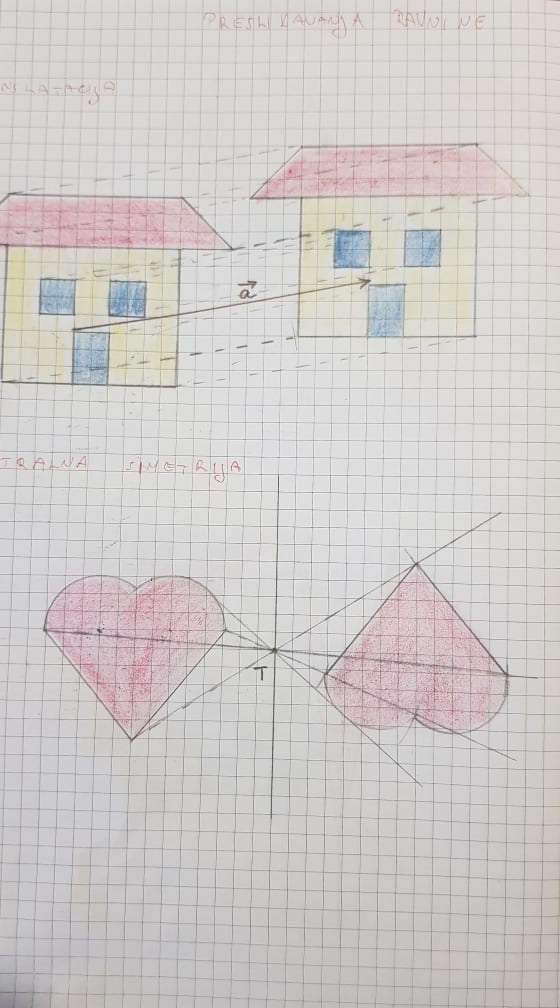 PRESLIKAVANJA RAVNINE
NSLATACIJA
a
TRALNA SIMETRIJA
T